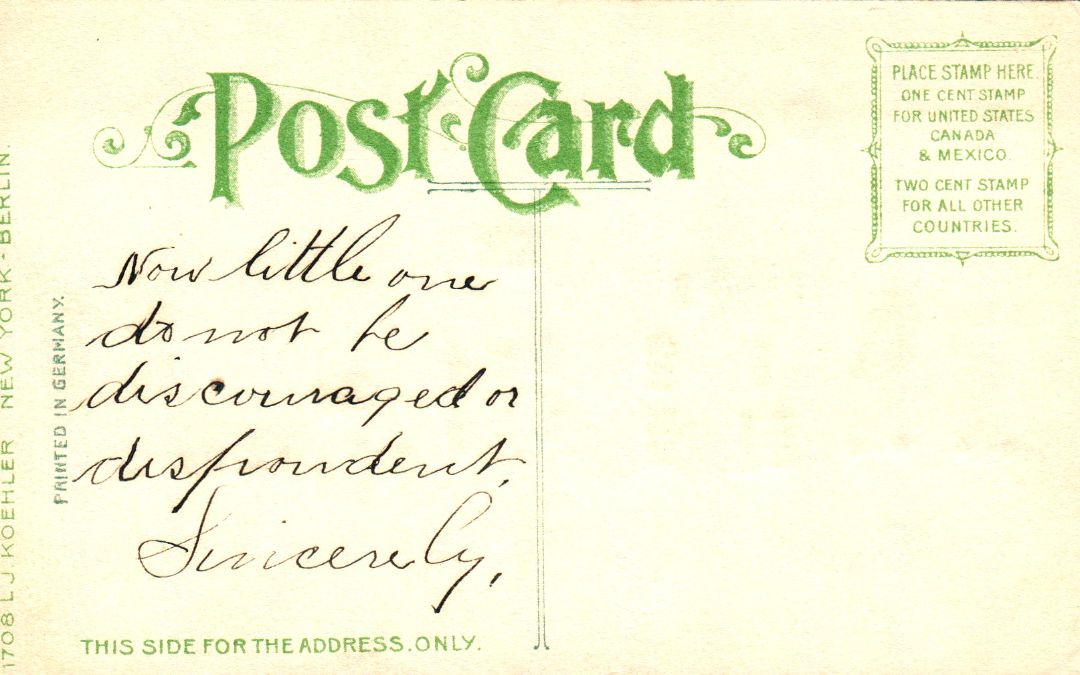 Post Card
PLACE STAMP HERE.
ONE CENT STAMP
FOR UNITED STATES
CANADA
& MEXICO.
TWO CENT STAMP
FOR ALL OTHER
COUNTRIES.
Now little one
do not be
discouraged or
dispondent,
Sincerely,
THIS SIDE FOR THE ADDRESS.ONLY.
PRINTED IN GERMANY.
1708 L.J. KOEHLER NEW YORK-BERLIN.